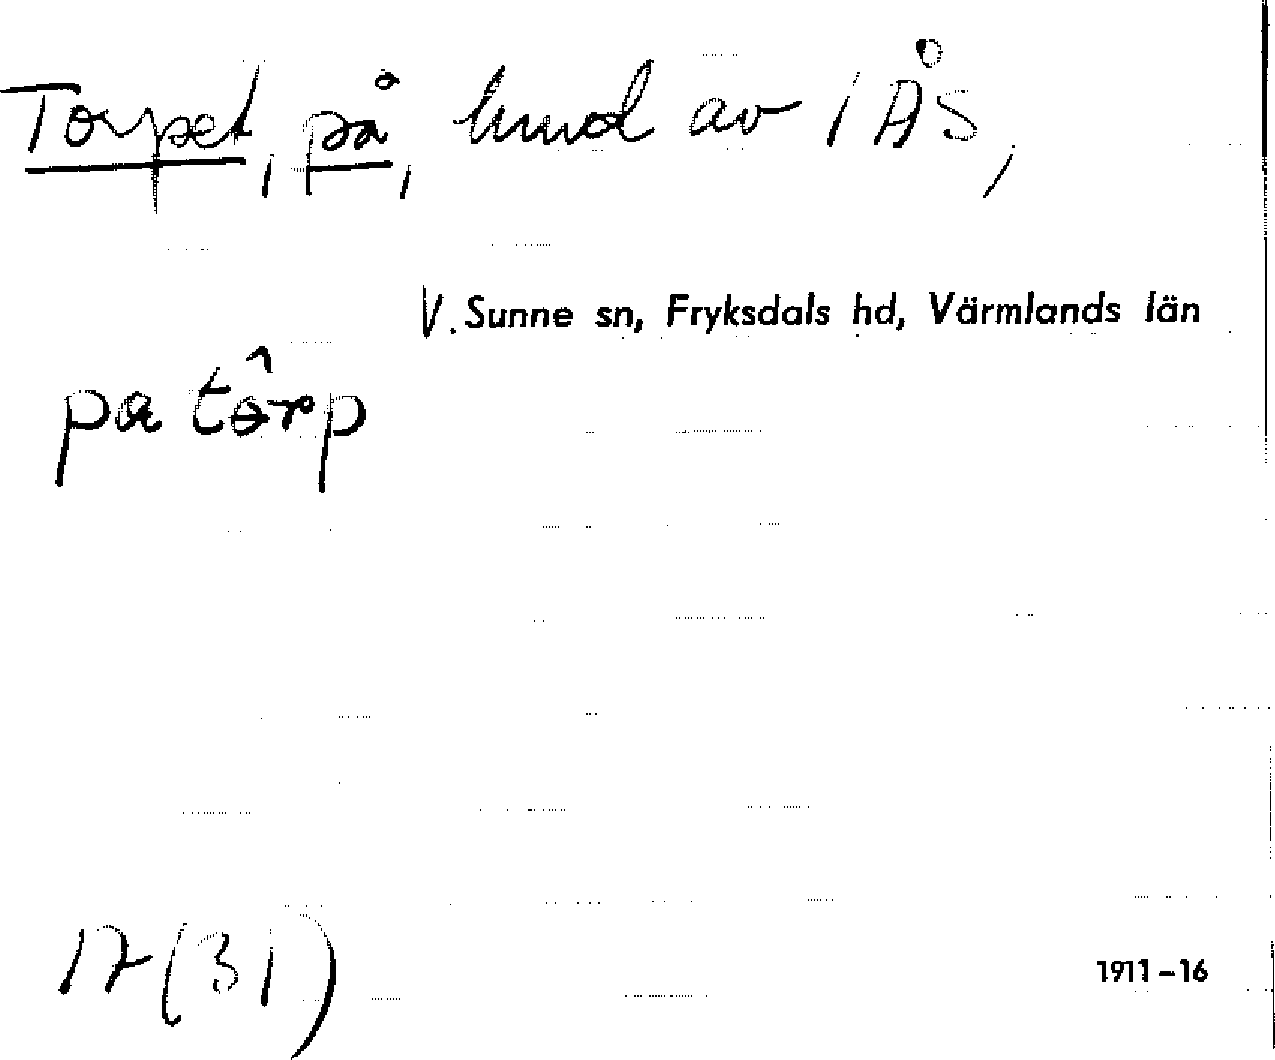 Torpet, på, hmd av 1 Ås,
V. Sunne sn, Fryksdals hd, Värmlands län
pa tôrp
12 (31)
1911-16